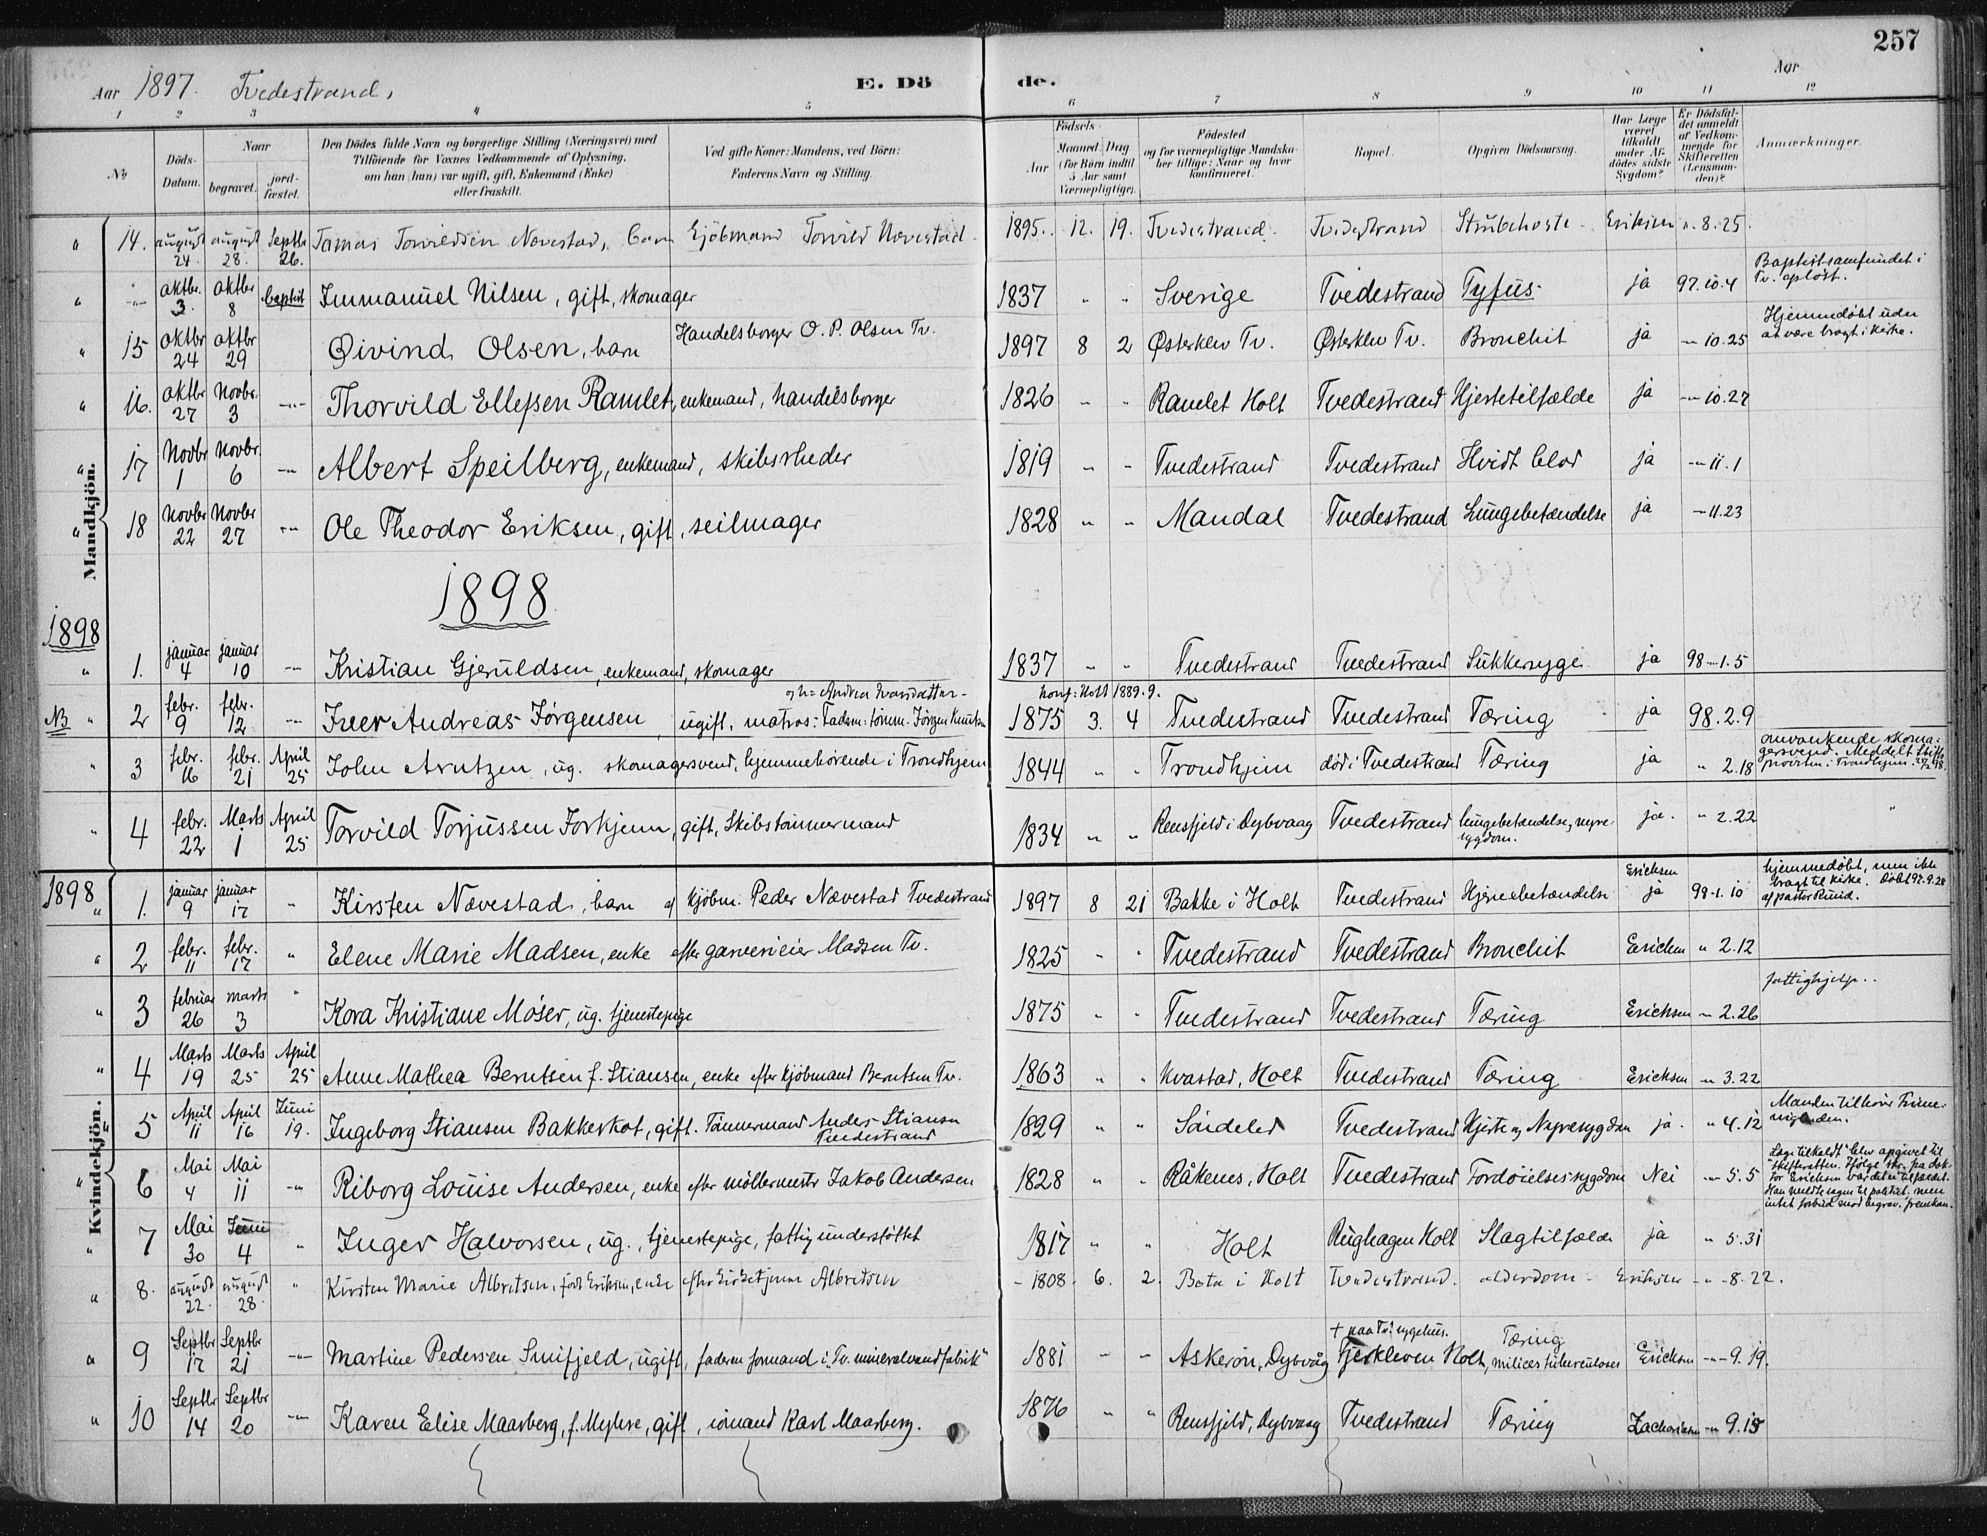 257
Aar 1897. Tvedestrand, E. Dö de. Aar
1 2 3 4 5 6 7 8 9 10 11 12
No
Döds-Datum.
Naar
begravet.
jord-fæstet.
Den Dödes fulde Navn og borgerlige Stilling (Næringsvei) med
Tilföiende for Voxnes Vedkommende af Oplysning,
om han (hun) var ugift, gift, Enkemand (Enke)
eller fraskilt.
Ved gifte Koner: Mandens, ved Börn:
Faderens Navn og Stilling.
Födsels-
Aar
Maaned. Dag
(for Börn indtil
5 Aar samt
Værnepligtige).
Födested
og for værnepligtige Mandska-
ber tillige: Naar og hvor
konfirmeret.
Bopæl.
Opgiven Dödsaarsag.
Har Læge
været
tilkaldt
under Af-
dödes sidste
Sygdom?
Er Dödsfal-
det anmeldt
af Vedkom-
mende for
Skifteretten
(Lensman-
den)?
Anmærkninger.
Mandkjön.
" 14. august 24. august 28. Septbr 26. Tomas Torvildsen Nævestad, barn Kjöbmand Torvild Nævestad 1895. 12. 19. Tvedestrand. Tvedestrand Strubehoste Eriksen " 8.25.
" oktbr. 3 oktbr 8 baptist Immanuel Nilsen, gift, skomager 1837 " " Sverige Tvedestrand Tyfus ja 97.10.4 Baptistsamfundet i Tv. opløst.
" 15 oktbr 24 oktbr 29 Øivind Olsen, barn Handelsborger O. P. Olsen Tv. 1897 8 2 Østerklev Tv. Østerklev Tv. Bronchit ja " 10.25 Hjemmedøbt uden at være bragt i kirke.
" 16. oktbr 27 Novbr. 3 Thorvild Ellefsen Ramlet, enkemand, handelsborger 1826 " " Ramlet Holt Tvedestrand Hjertetilfælde ja " 10.27
" 17 Novbr 1 Novbr. 6 Albert Speilberg, enkemand, skibsrheder 1819 " " Tvedestrand Tvedestrand Hvidt blod ja " 11.1
" 18 Novbr 22 Novbr 27 Ole Theodor Eriksen, gift, seilmager 1828 " " Mandal Tvedestrand Lungebetændelse ja 11.23
1898
1898
" 1. januar 4 januar 10 Kristian Gjeruldsen, enkemand, skomager 1837 " " Tvedestrand Tvedestrand Sukkersyge ja 98-1.5
NB " 2 febr. 9 febr. 12 Iver Andreas Jørgensen, ugift, matros: Fadern: tömm. Jörgen Knutsen og h. Andrea Ivarsdatter konf: Holt 1889.9. 1875 3. 4 Tvedestrand Tvedestrand Tæring ja 98.2.9
" 3 febr. 16 febr. 21 April 25 John Arntzen, ug. skomagersvend, hjemmehörende i Trondhjem 1844 " " Trondhjem död i Tvedestrand Tæring ja " 2.18 omvankende skoma-gersvend. Meddelt Stifts-provsten i Trondhjem
" 4 febr. 22 Marts 1 April 25 Torvild Torjussen Forkjern, gift, Skibstömmermand 1834 " " Rensfjeld i Dybvaag Tvedestrand lungebetændelse, nyre-sygdom. ja. " 2.22
Kvindekjön.
1898
" 1. januar 9 januar 17 " Kirsten Nævestad, barn af kjöbm. Peder Nævestad Tvedestrand 1897 8 21 Bakke i Holt Tvedestrand Hjernebetændelse Ericksen ja 98-1.10 hjemmedøbt, men ikke bragt til kirke. Døbt 97.9.28 af pastor Ruud.
" 2 febr. 11 febr. 17 " Elene Marie Madsen, enke efter garverieier Madsen Tv. 1825 " " Tvedestrand Tvedestrand Bronchit Ericksen " 2.12
" 3 februar 26 marts 3 " Kora Kristiane Möser, ug. tjenestepige 1875 " " Tvedestrand Tvedestrand Tæring Ericksen " 2.26 fattighjelp.
" 4 Marts 19 Marts 25 April 25 Anne Mathea Berntsen f. Stiansen, enke efter kjöbmand Berntsen Tv. 1863 " " Kvastad, Holt Tvedestrand Tæring Ericksen " 3.22
5 April 11 April 16 Juni 19. Ingeborg Stiansen Bakkerkot, gift. Tömmermand Anders Stiansen Tvedestrand 1829 " " Söndeled Tvedestrand Hjerte og Nyresygdom ja. " 4.12 Manden tilhörer Frime-nigheden.
" 6 Mai 4 Mai 11 Riborg Louise Andersen, enke efter möllermestr Jakob Andersen 1828 " " Råkenes, Holt Tvedestrand Fordöielsessygdom Nei 5.5 Læge tilkaldt blev opgivet til skifteretten. Ifölge skr. fra dok-tor Ericksen var det ei tilfældet. Han meldte sagen til politiet, men intet forbud mod begrav. fremkom.
" 7 Mai 30 Juni 4 " Inger Halvorsen, ug., tjenestepige, fattigunderstöttet 1817 " " Holt Rughagen Holt Slagtilfælde ja " 5.31
" 8. august 22. august 28. " Kirsten Marie Albretsen, född Eriksen, enke efter Albretsen 1808 6. 2. Bota i Holt Tvedestrand. alderdom Eriksen " 8-22.
" 9 Septbr 17 Septbr 21 Martine Pedersen Smifjeld, ugift, faderen formand i "Tv. mineralvandfabrik" 1881 " " Askerön, Dybvåg + paa Tv. sygehus. Fjerkleven Holt, Tæring milices tuberculoses Ericksen 9.19.
" 10 Septbr 14 Septbr 20 Karen Elise Maarberg, f. Myhre, gift, sömand Karl Maarberg. 1876 " " Rensfjeld, Dybvaag Tvedestrand Tæring Zachariasen 9.15